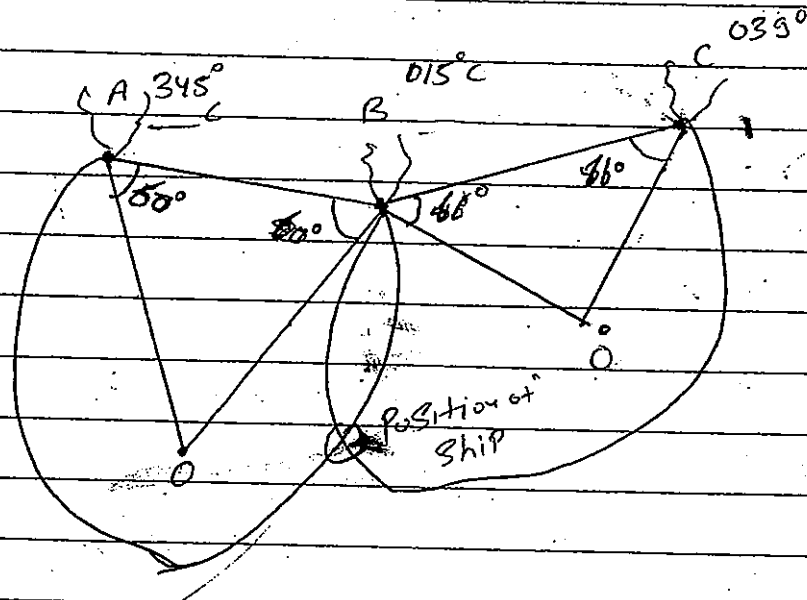 039°
C
015°C
A 345°
C
B
60°
60°
66°
66°
O
O
Position of
Ship